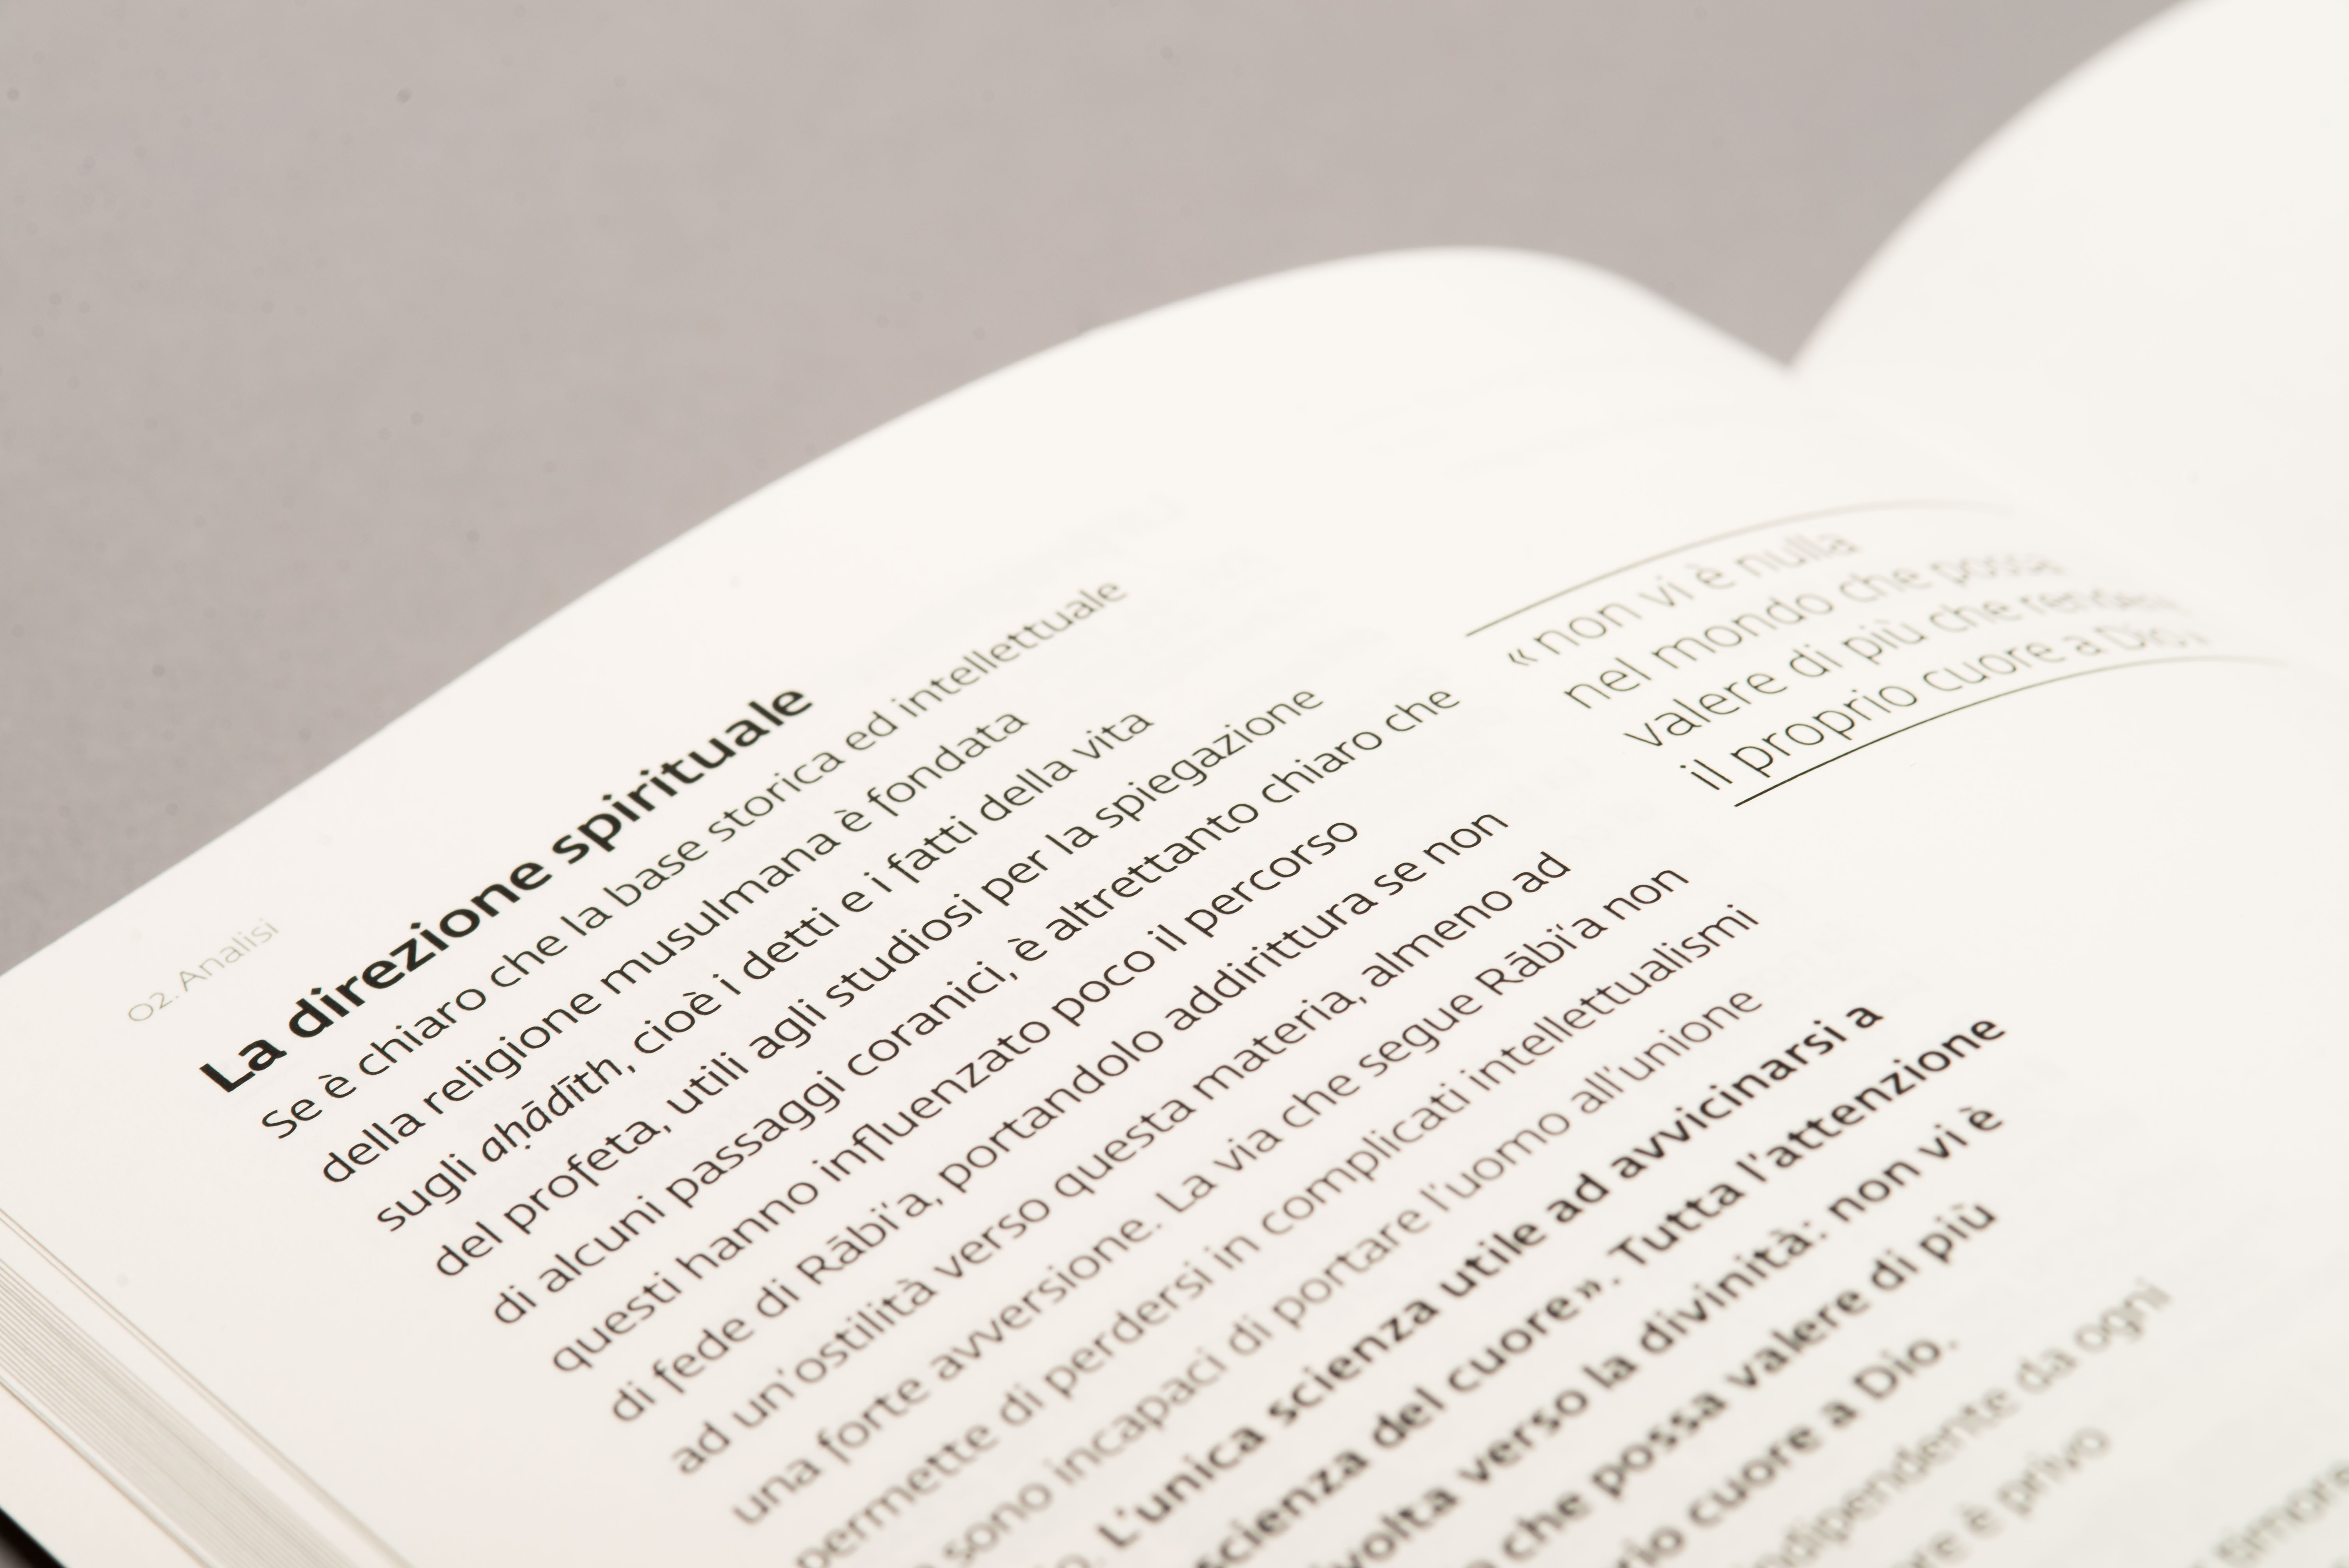 02. Analisi
La direzione spirituale
Se è chiaro che la base storica ed intellettuale
della religione musulmana è fondata
sugli aḥādīth, cioè i detti e i fatti della vita
del profeta, utili agli studiosi per la spiegazione
di alcuni passaggi coranici, è altrettanto chiaro che
questi hanno influenzato poco il percorso
di fede di Rābi'a, portandolo addirittura se non
ad un'ostilità verso questa materia, almeno ad
una forte avversione. La via che segue Rābi'a non
permette di perdersi in complicati intellettualismi
sono incapaci di portare l'uomo all'unione
L'unica scienza utile ad avvicinarsi a
scienza del cuore». Tutta l'attenzione
verso la divinità: non vi è
che possa valere di più
cuore a Dio.
da ogni
è privo
«non vi è nulla
nel mondo che possa
valere di più che
il proprio cuore a Dio»